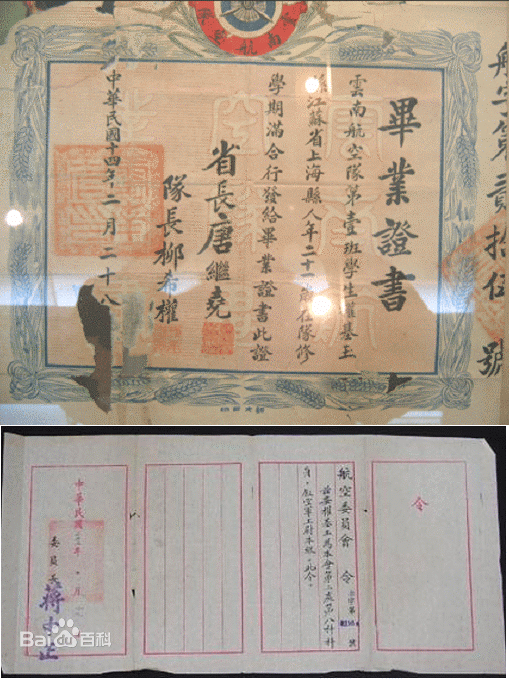 航字第貳拾伍號
畢業證書
雲南航空隊第壹班學生權基玉
江蘇省上海縣人年二十一歲在隊修
學期滿合行發給畢業證書此證
省長唐繼堯
隊長柳希權
中華民國十四年二月二十八
令
航空委員會 令
字第
號
茲委權基玉為本會第二處第八科科
員。叙空軍上尉本級。此令。
中華民國 年 月
委員長 蔣中正
Bai百科